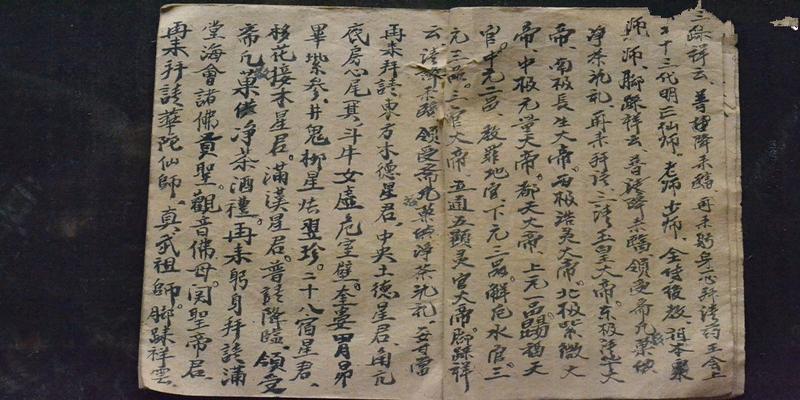 踩祥云、普請降来臨、再来躬身一心拜請药王会上
二十三代明医仙师、老师士师、全侍後教、祖本
师师、脚踩祥云、普請降来臨領受斋凡菓供
净茶洗礼、再来拜請三清玉皇大帝、东极
帝、南极長生大帝、西极浩灵大帝、北极紫微大
帝、中极元灵天帝、都天大帝、上元一品賜福天
官、中元二品、赦罪地官、下元三品、解厄水官、三
元三品、三官大帝、五通五顯灵官大帝、脚踩祥
云請降来臨領受斋凡菓供净茶洗礼
再来拜請東方木德星君、中央土德星君、角亢
氐房心尾箕、斗牛女虚危室壁、奎婁胃昴
畢觜参、井鬼柳星張翌珍、二十八宿星君、
移花接木星君、滿漢星君、普請降臨、領受
斋凡菓供净茶酒禮、再来躬身拜請滿
堂海會諸佛賢聖、觀音佛母、関聖帝君
再来拜請華陀仙師、真武祖師、脚踩祥雲